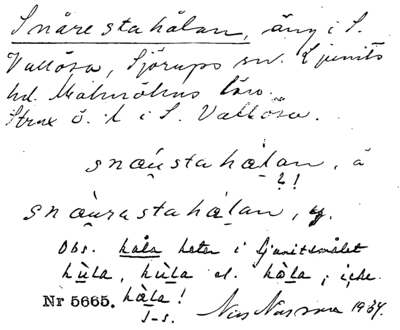 Snårestahålan, äng i S.
Vallösa, Sjörups sn. Ljunits
hd. Malmöhus län.
Strax ö. i S. Vallösa.
snæ̀ustahæ̀lan, ä
?!
snæ̀urastahæ̀lan, y.
Obs. håla heter i Ljunitsmålet
hùla, hù̱la el. hò̱la, icke
Nr 5665. hæ̀la!
J-s. Nils Nilsson 1937.